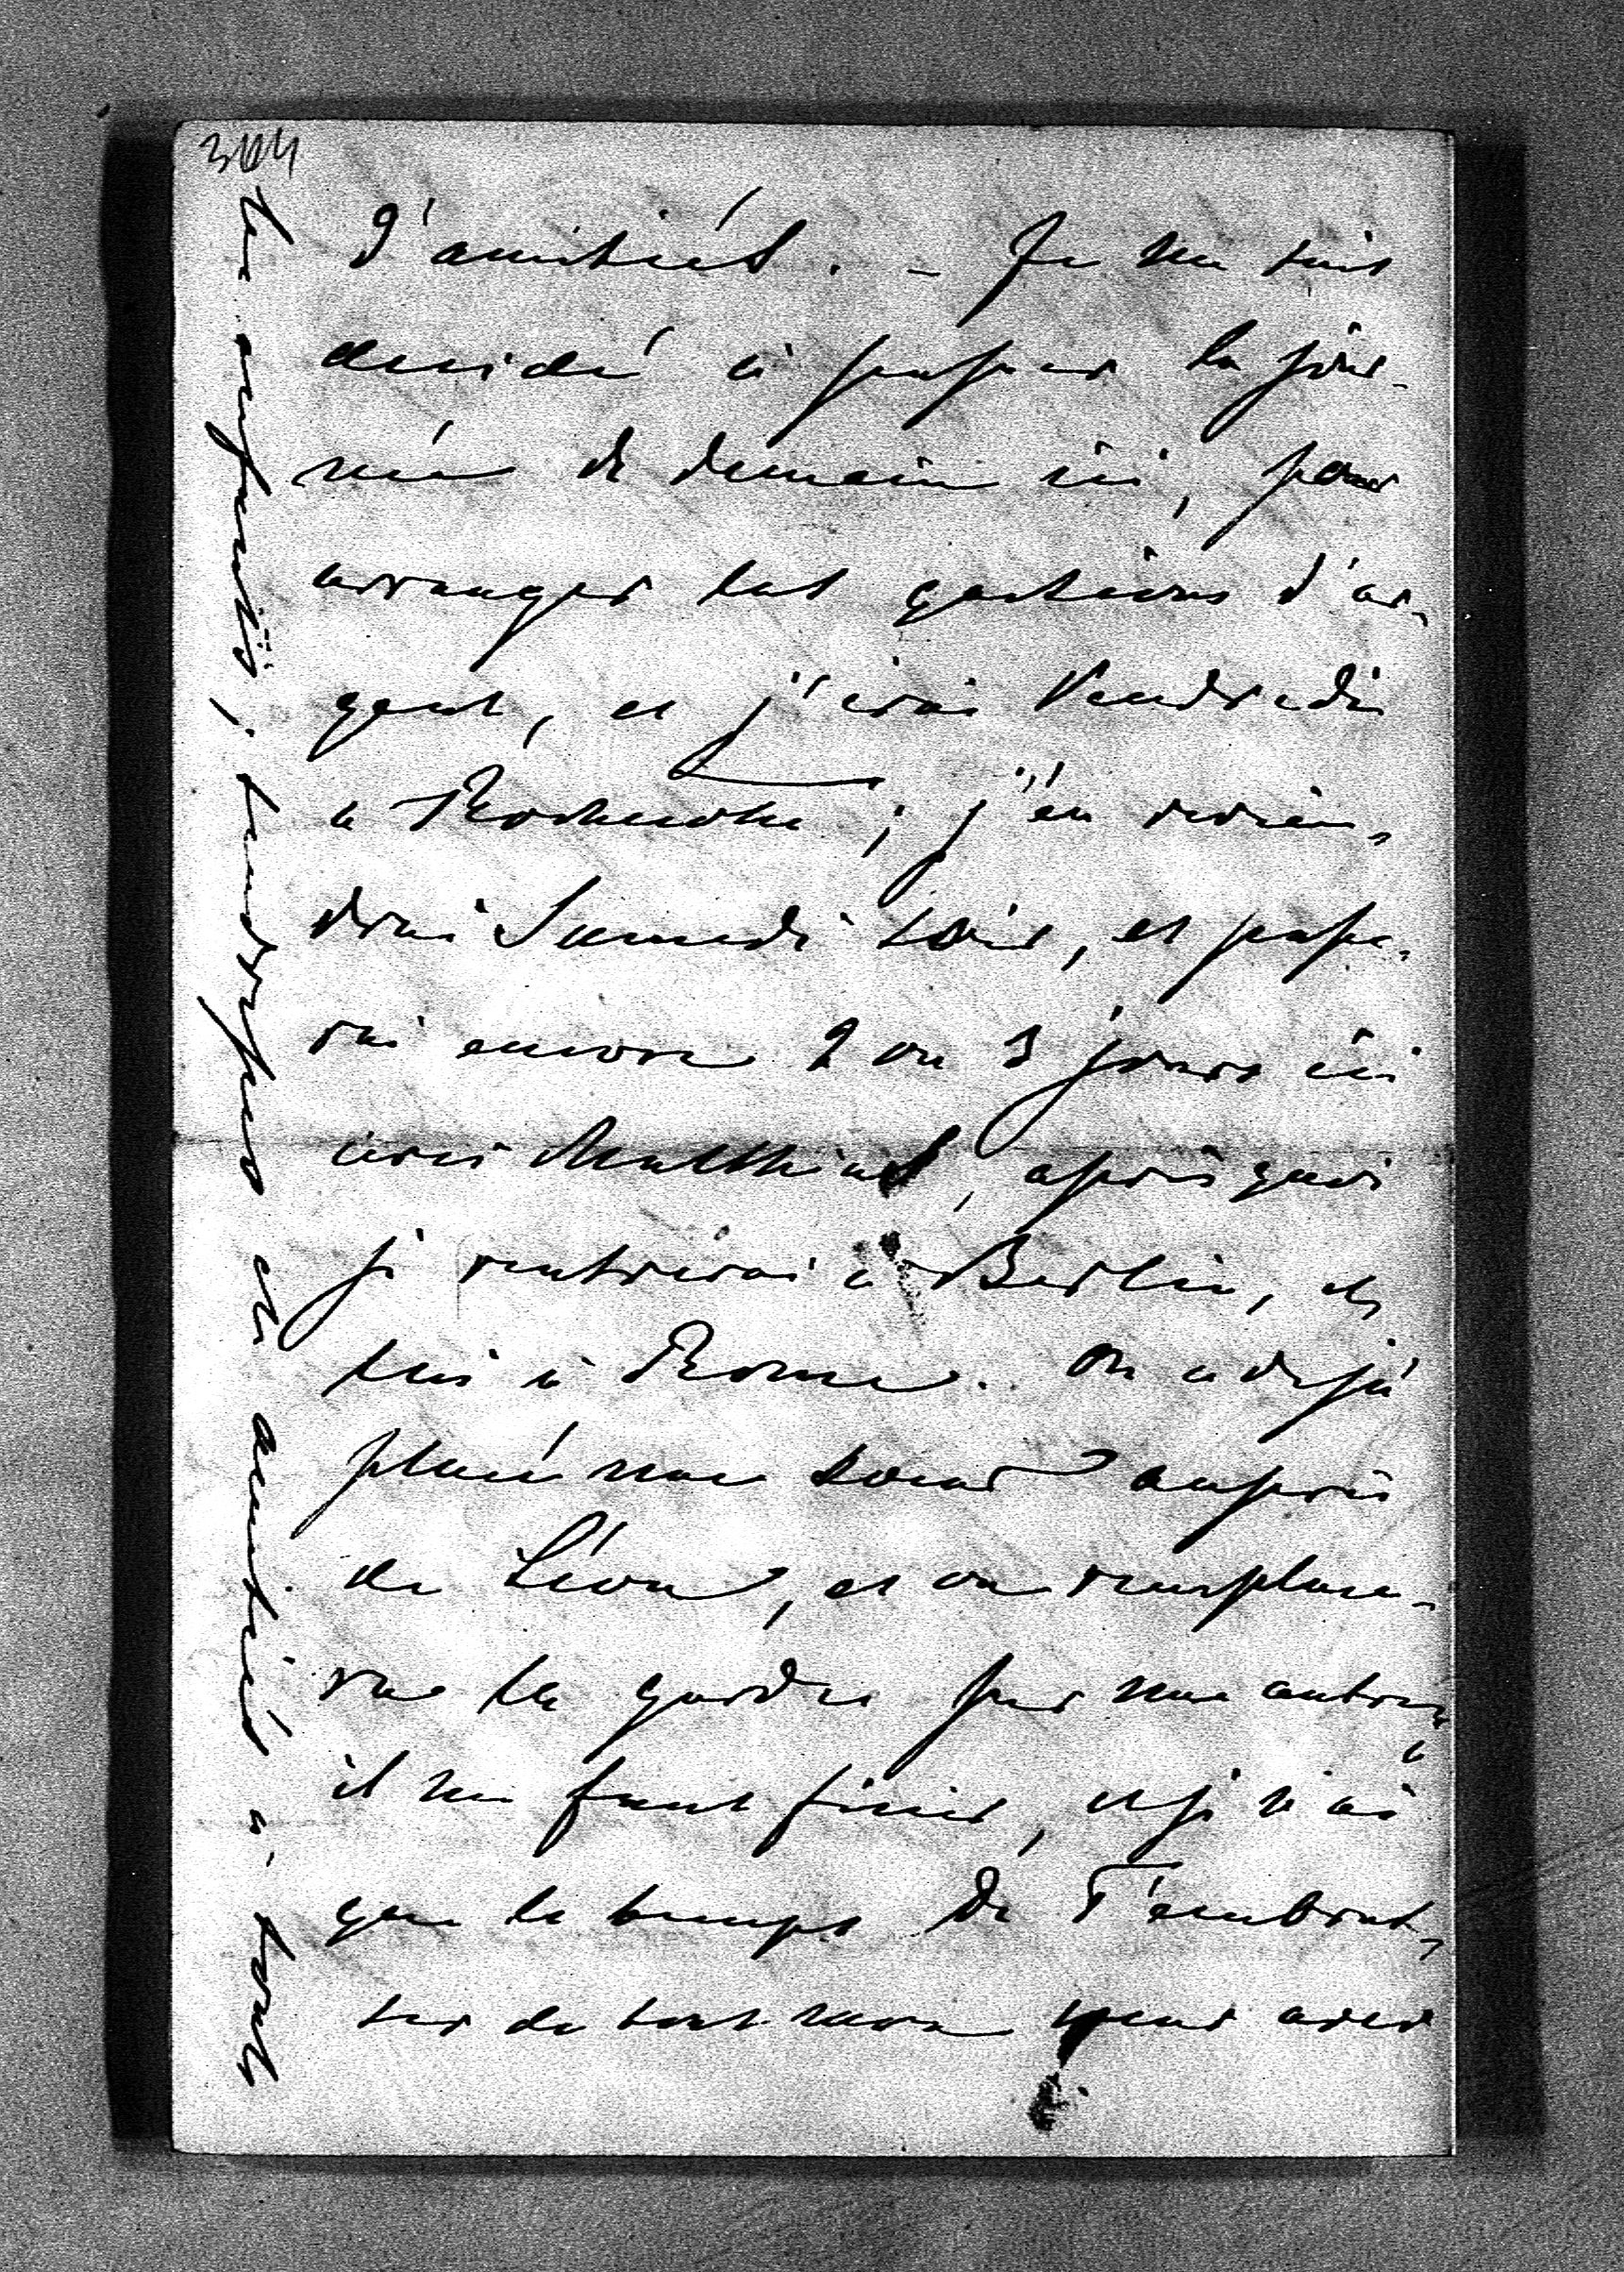 304
d'amitiés. - Je me suis
decidé à passer la jour-
née de demain ici, pour
arranger les qestions d'ar-
gent, et j'irai Vendredi
a ; j'en revien-
drai Samedi soir, et passe-
rai encore 2 ou 3 jours ici
avec Matthias, après quoi
je rentrerai à Berlin, et
puis à Rome. On a déjà
placé une soeur auprès
de Léon, et on remplace-
ra la garde par une autre
il me faut finir, et je n'ai
que le temps de T'embras-
ser de tout mon coeur avec
les enfants; transmets en amitiés à tous